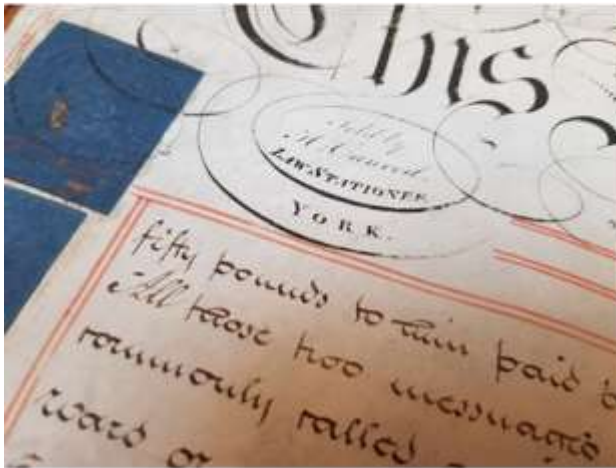 This
Sold by
LAW STATIONER
YORK.
fifty pounds to him paid
All those two messuages
commonly called